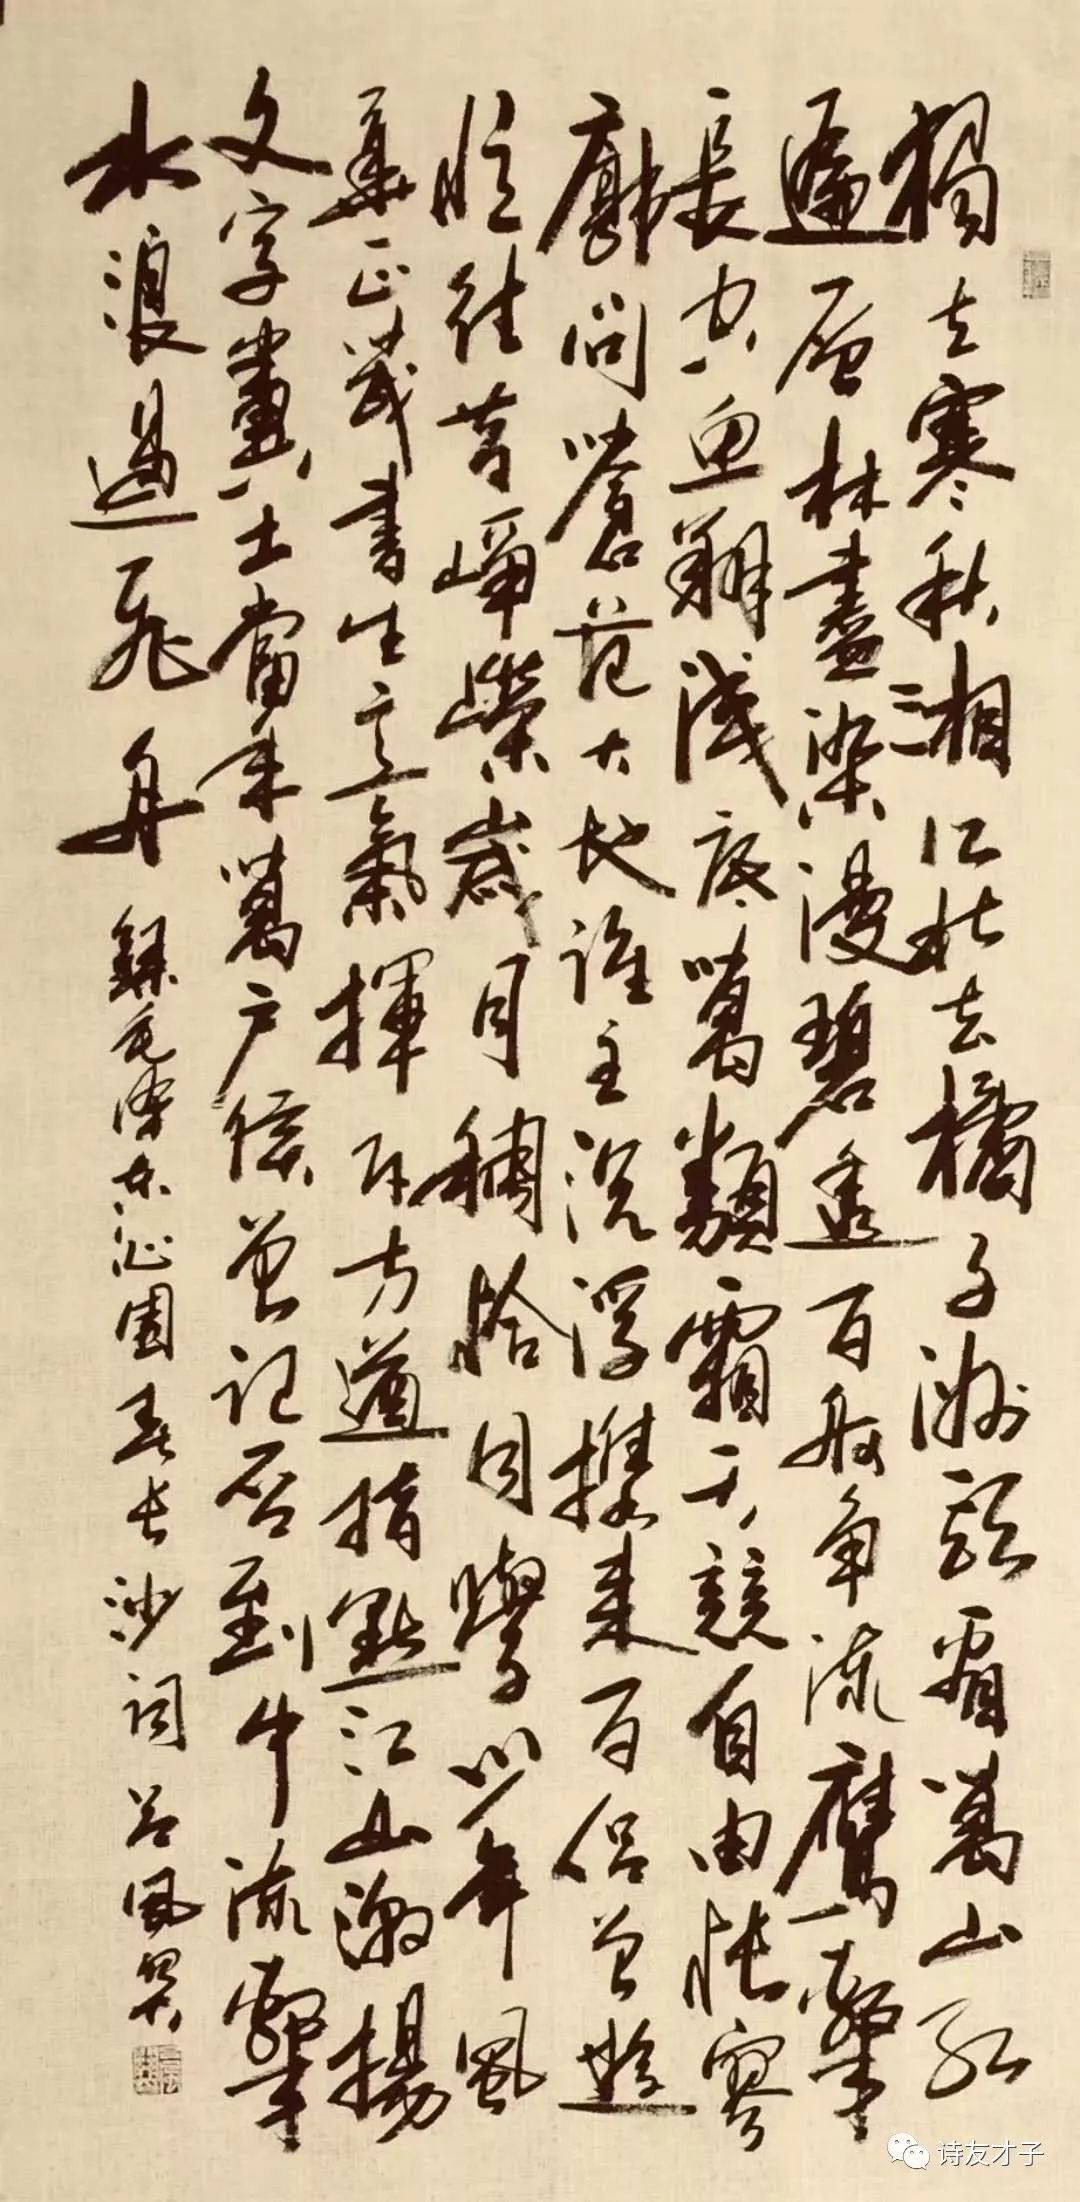 獨立寒秋湘江北去橘子洲頭看萬山紅
遍层林盡染漫碧透百舸争流鷹擊
長空魚翔淺底萬類霜天競自由悵寥
廓問蒼茫大地誰主沉浮攜来百侣曾遊
憶往昔崢嶸歲月稠恰同學少年風
華正茂書生意氣揮斥方遒指點江山激揚
文字糞土當年萬户侯曾記否到中流擊
水浪遏飛舟 錄毛澤东沁園春長沙词
诗友才子